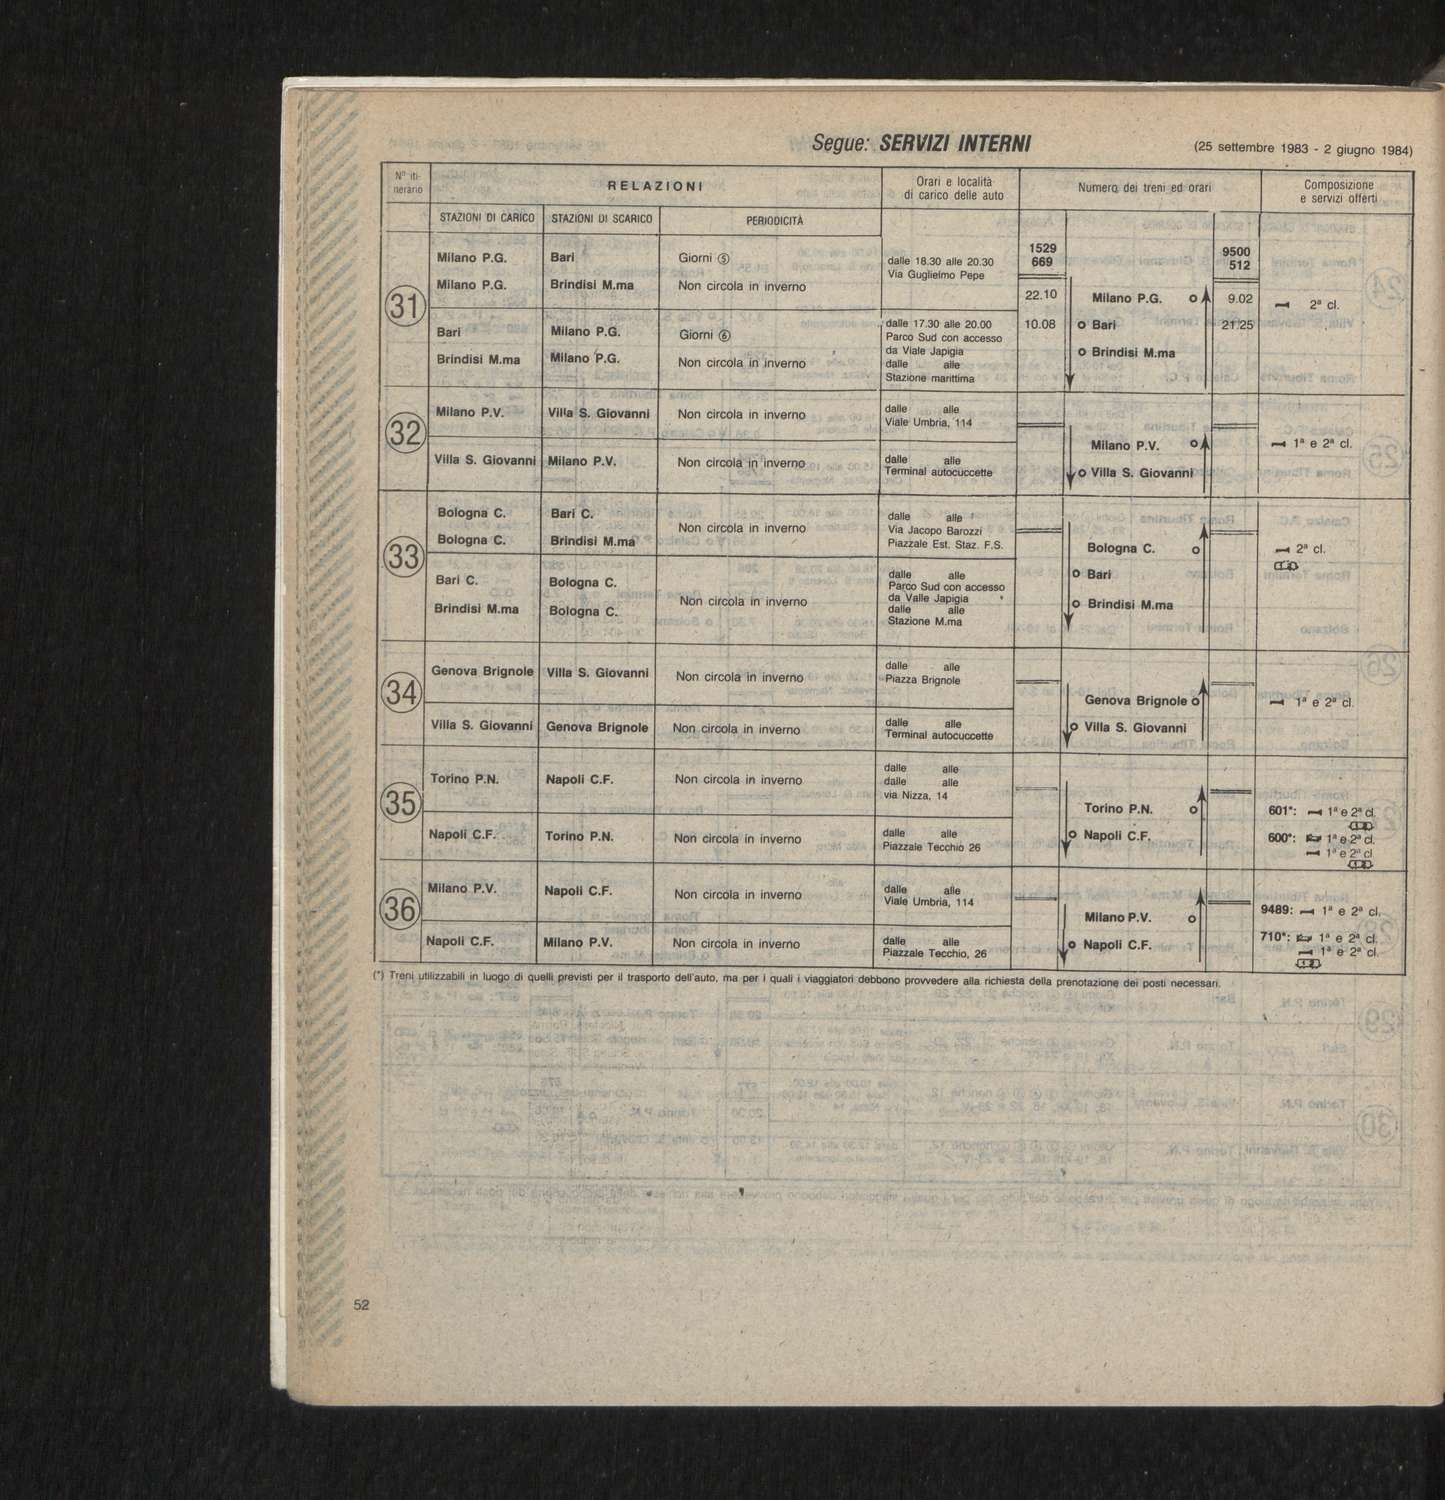 Segue: SERVIZI INTERNI
(25 settembre 1983 - 2 giugno 1984)
Nº iti-
nerario
RELAZIONI
Orari e località
di carico delle auto
Numero dei treni ed orari
Composizione
e servizi offerti
STAZIONI DI CARICO STAZIONI DI SCARICO PERIODICITÀ
31
Milano P.G. Bari Giorni ⑤
Milano P.G. Brindisi M.ma Non circola in inverno
dalle 18.30 alle 20.30
Via Guglielmo Pepe
Bari Milano P.G. Giorni ⑥
Brindisi M.ma Milano P.G. Non circola in inverno
dalle 17.30 alle 20.00
Parco Sud con accesso
da Viale Japigia
dalle alle
Stazione marittima
1529
669
9500
512
22.10 Milano P.G. 9.02
10.08 Bari 21.25
Brindisi M.ma
2ª cl.
32
Milano P.V. Villa S. Giovanni Non circola in inverno
dalle alle
Viale Umbria, 114
Villa S. Giovanni Milano P.V. Non circola in inverno
dalle alle
Terminal autocuccette
Milano P.V.
Villa S. Giovanni
1ª e 2ª cl.
33
Bologna C. Bari C.
Bologna C. Brindisi M.ma
Non circola in inverno
dalle alle
Via Jacopo Barozzi
Piazzale Est. Staz. F.S.
Bari C. Bologna C.
Brindisi M.ma Bologna C.
Non circola in inverno
dalle alle
Parco Sud con accesso
da Valle Japigia
dalle alle
Stazione M.ma
Bologna C.
Bari
Brindisi M.ma
2ª cl.
34
Genova Brignole Villa S. Giovanni Non circola in inverno
dalle alle
Piazza Brignole
Villa S. Giovanni Genova Brignole Non circola in inverno
dalle alle
Terminal autocuccette
Genova Brignole
Villa S. Giovanni
1ª e 2ª cl.
35
Torino P.N. Napoli C.F. Non circola in inverno
dalle alle
dalle alle
via Nizza, 14
Napoli C.F. Torino P.N. Non circola in inverno
dalle alle
Piazzale Tecchio 26
Torino P.N.
Napoli C.F.
601*: 1ª e 2ª cl.
600*: 1ª e 2ª cl.
1ª e 2ª cl.
36
Milano P.V. Napoli C.F. Non circola in inverno
dalle alle
Viale Umbria, 114
Napoli C.F. Milano P.V. Non circola in inverno
dalle alle
Piazzale Tecchio, 26
Milano P.V.
Napoli C.F.
9489: 1ª e 2ª cl.
710*: 1ª e 2ª cl.
1ª e 2ª cl.
(*) Treni utilizzabili in luogo di quelli previsti per il trasporto dell'auto, ma per i quali i viaggiatori debbono provvedere alla richiesta della prenotazione dei posti necessari.
52